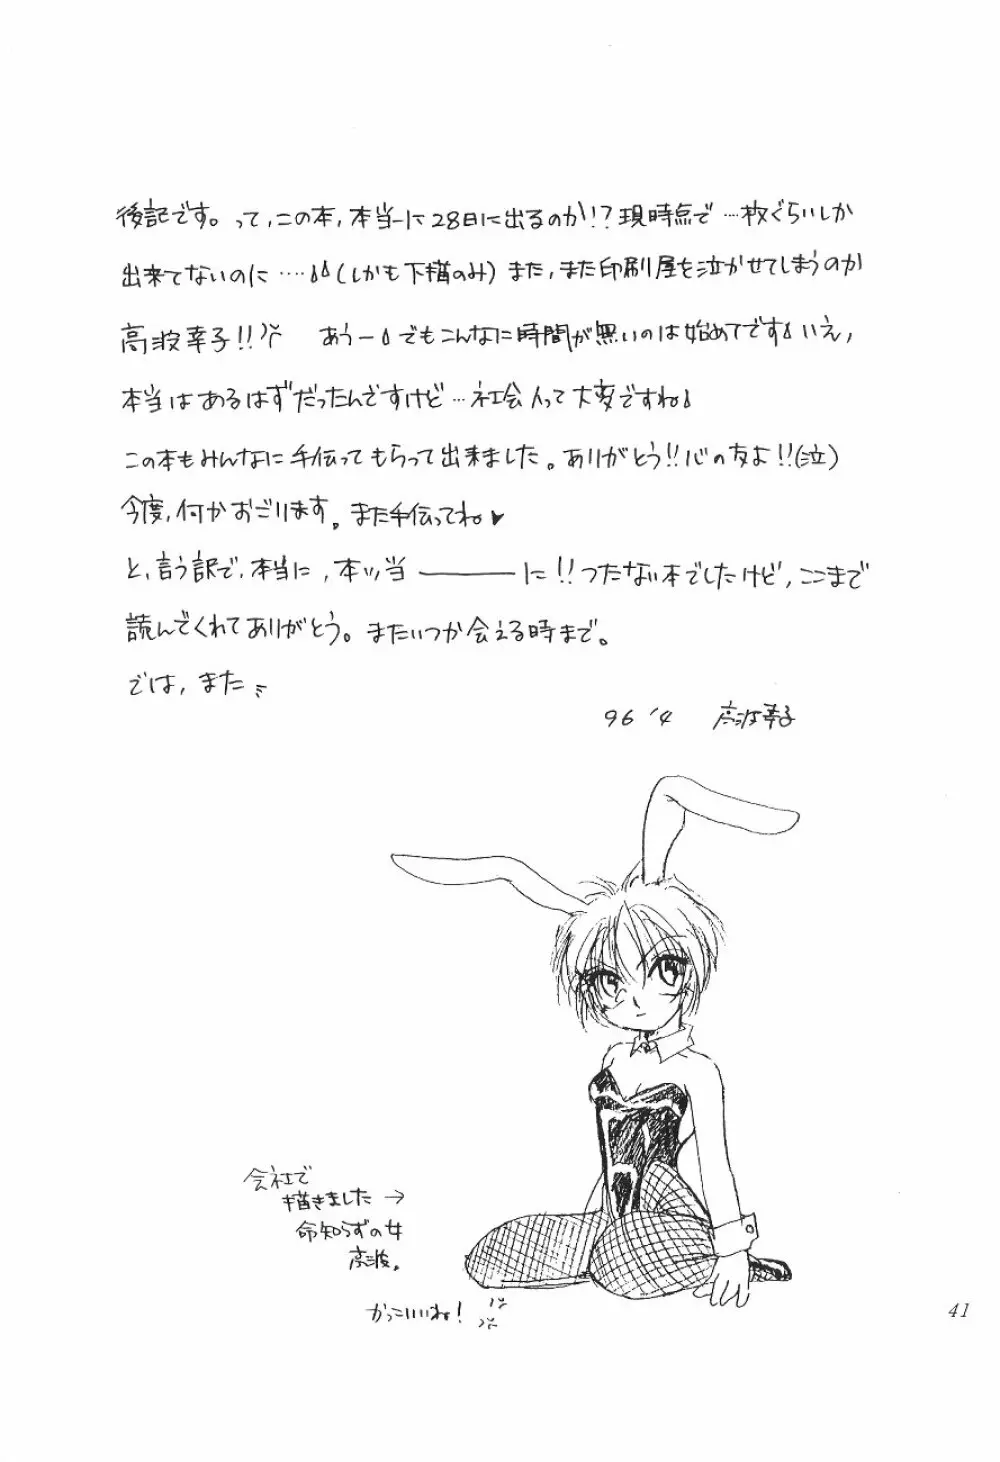 後記です。って,この本,本当ーに28日に出るのか!?現時点で…枚ぐらいしか
出来てないのに‥‥(しかも下描のみ)また,また印刷屋を泣かせてしまうのか
高波幸子!! あうー でもこんなに時間が無いのは始めてです いえ,
本当はあるはずだったんですけど…社会人って大変ですね
この本もみんなに手伝ってもらって出来ました。ありがとう!!心の友よ!!(泣)
今度,何かおごります。また手伝ってね♥
と,言う訳で,本当に,本ッ当―――に!!つたない本でしたけど,ここまで
読んでくれてありがとう。またいつか会える時まで。
では,また
96 '4 高波幸子
会社で
描きました→
命知らずの女
高波。
かっこいいね!
41